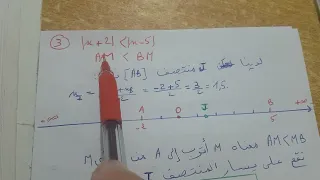 ③ |x+2| < |x-5|
AM < BM
لدينا J منتصف [AB]
= = \frac{-2+5}{2} = \frac{3}{2} = 1,5
-∞ A O J B +∞
-2 5
AM<MB معناه M أقرب إلى A من
تقع على يسار المنتصف J